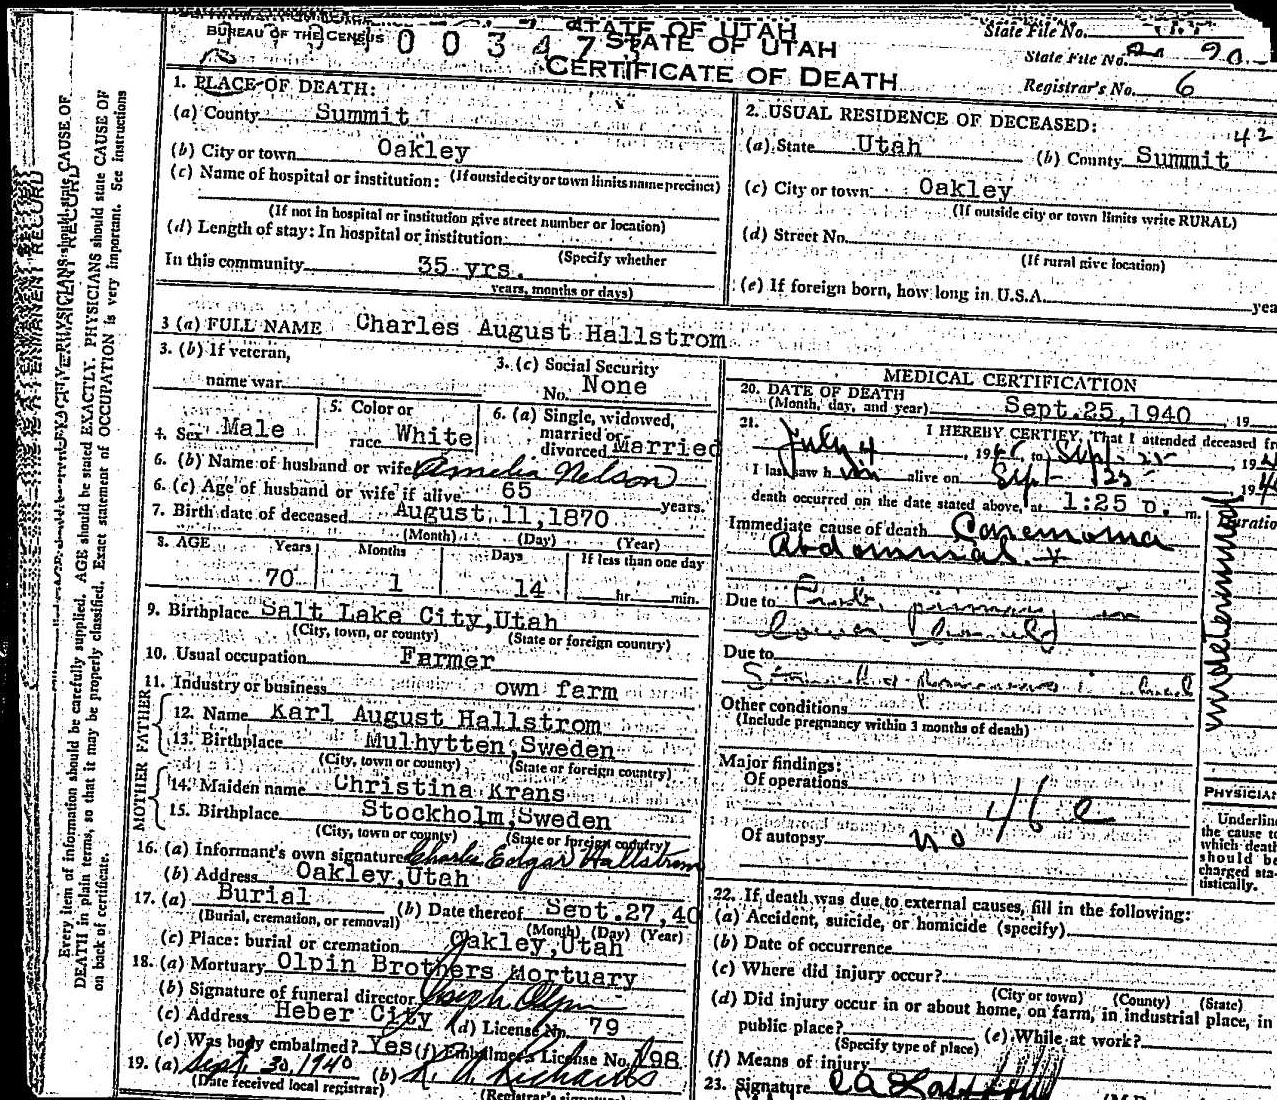 BUREAU OF THE CENSUS
003473
STATE OF UTAH
STATE OF UTAH
CERTIFICATE OF DEATH
State File No.
State File No. 90
Registrar's No. 6
1. PLACE OF DEATH:
(a) County Summit
(b) City or town Oakley
(If outside city or town limits name precinct)
(c) Name of hospital or institution:
(If not in hospital or institution give street number or location)
(d) Length of stay: In hospital or institution
(Specify whether
In this community 35 yrs.
years, months or days)
2. USUAL RESIDENCE OF DECEASED:
42
(a) State Utah (b) County Summit
(c) City or town Oakley
(If outside city or town limits write RURAL)
(d) Street No.
(If rural give location)
(e) If foreign born, how long in U.S.A. yea
3 (a) FULL NAME Charles August Hallstrom
3. (b) If veteran,
name war
3. (c) Social Security
No. None
4. Sex Male
5. Color or
race White
6. (a) Single, widowed,
married or
divorced Married
6. (b) Name of husband or wife Amelia Nelson
6. (c) Age of husband or wife if alive 65 years.
7. Birth date of deceased August 11,1870
(Month) (Day) (Year)
8. AGE Years Months Days If less than one day
70 1 14 hr. min.
9. Birthplace Salt Lake City,Utah
(City, town, or county) (State or foreign country)
10. Usual occupation Farmer
11. Industry or business own farm
FATHER
12. Name Karl August Hallstrom
13. Birthplace Mulhytten,Sweden
(City, town, or county) (State or foreign country)
MOTHER
14. Maiden name Christina Krans
15. Birthplace Stockholm,Sweden
(City, town or county) (State or foreign country)
16. (a) Informant's own signature Charles Edgar Hallstrom
(b) Address Oakley,Utah
17. (a) Burial (b) Date thereof Sept.27,40
(Burial, cremation, or removal) (Month) (Day) (Year)
(c) Place: burial or cremation Oakley,Utah
18. (a) Mortuary Olpin Brothers Mortuary
(b) Signature of funeral director Joseph Olpin
(c) Address Heber City (d) License No. 79
(e) Was body embalmed? Yes (f) Embalmer's License No. 198
19. (a) Sept. 30, 1940 (b) Richards
(Date received local registrar) (Registrar's signature)
MEDICAL CERTIFICATION
20. DATE OF DEATH
(Month, day, and year) Sept.25,1940, 19
21. I HEREBY CERTIFY, That I attended deceased fr
July 4, 1940 to Sept 25, 194
I last saw him alive on Sept 25 1940
death occurred on the date stated above, at 1:25 p. m.
Duratio
Immediate cause of death Carcinoma
Abdominal
undetermined
Due to
Due to
Other conditions
(Include pregnancy within 3 months of death)
Major findings:
Of operations
46 e
Of autopsy no
PHYSICIA
Underlin
the cause t
which deat
should b
charged sta-
tistically.
22. If death was due to external causes, fill in the following:
(a) Accident, suicide, or homicide (specify)
(b) Date of occurrence
(c) Where did injury occur?
(City or town) (County) (State)
(d) Did injury occur in or about home, on farm, in industrial place, in
public place?
(Specify type of place)
(e) While at work?
(f) Means of injury
23. Signature
Every item of information should be carefully supplied. AGE should be stated EXACTLY. PHYSICIANS should state CAUSE OF
DEATH in plain terms, so that it may be properly classified. Exact statement of OCCUPATION is very important. See instructions
on back of certificate.